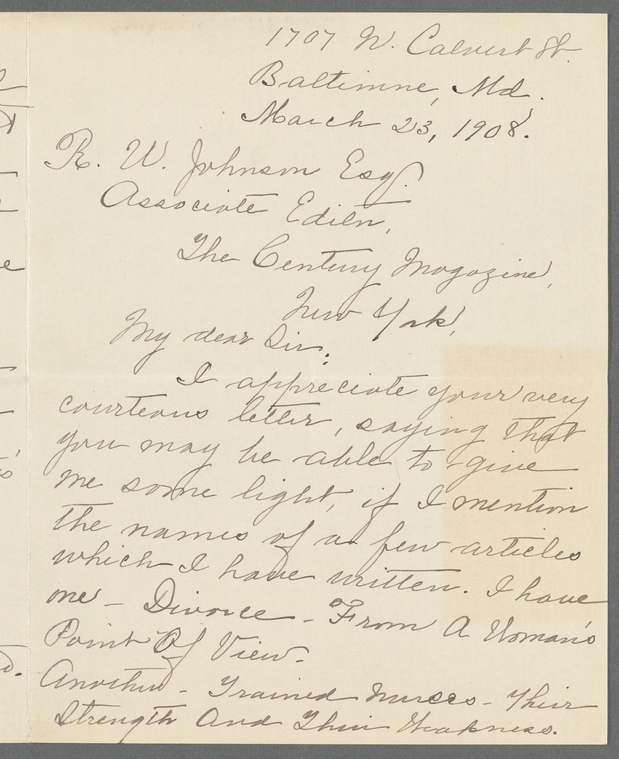 1707 N. Calvert St.
Baltimore, Md.
March 23, 1908.
R. W. Johnson Esq.
Associate Editor,
The Century Magazine,
New York,
My dear Sir:
I appreciate your very
courteous letter, saying that
you may be able to give
me some light, if I mention
the names of a few articles
which I have written. I have
one - Divorce - From A Woman's
Point Of View -
Another - Trained Nurses - Their
Strength And Their Weakness.